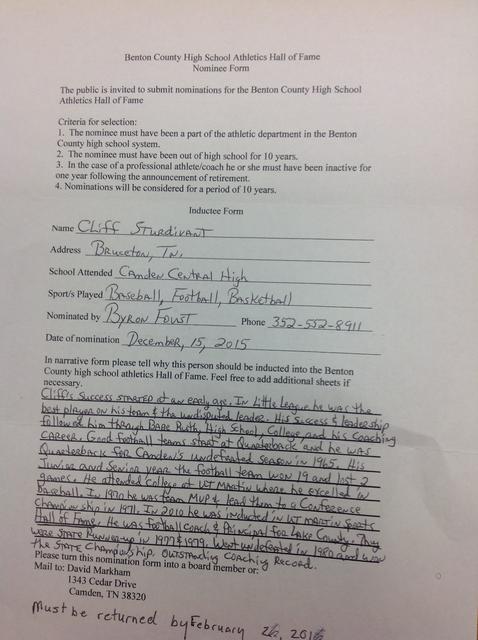 Benton County High School Athletics Hall of Fame
Nominee Form
The public is invited to submit nominations for the Benton County High School
Athletics Hall of Fame
Criteria for selection:
1. The nominee must have been a part of the athletic department in the Benton
County high school system.
2. The nominee must have been out of high school for 10 years.
3. In the case of a professional athlete/coach he or she must have been inactive for
one year following the announcement of retirement.
4. Nominations will be considered for a period of 10 years.
Inductee Form
Name Cliff Sturdivant
Address Bruceton, Tn.
School Attended Camden Central High
Sport/s Played Baseball, Football, Basketball
Nominated by Byron Foust Phone 352-552-8911
Date of nomination December, 15, 2015
In narrative form please tell why this person should be inducted into the Benton
County high school athletics Hall of Fame. Feel free to add additional sheets if
necessary.
Cliff's success started at an early age. In Little League he was the
best player on his team & the undisputed leader. His success & leadership
followed him through Babe Ruth, High School, College and his coaching
career. Good football teams start at Quarterback and he was
Quarterback for Camden's undefeated season in 1965. His
Junior and Senior year the football team won 19 and lost 2
games. He attended College at UT Martin where he excelled in
Baseball. In 1970 he was team MVP & lead them to a Conference
Championship in 1971. In 2010 he was inducted in UT Martin Sports
Hall of Fame. He was football coach & Principal for Lake County. They
were State Runnerup in 1977 & 1979. Went undefeated in 1980 and won
the State Championship. Outstanding Coaching Record.
Please turn this nomination form into a board member or
Mail to: David Markham
1343 Cedar Drive
Camden, TN 38320
Must be returned by February 2016